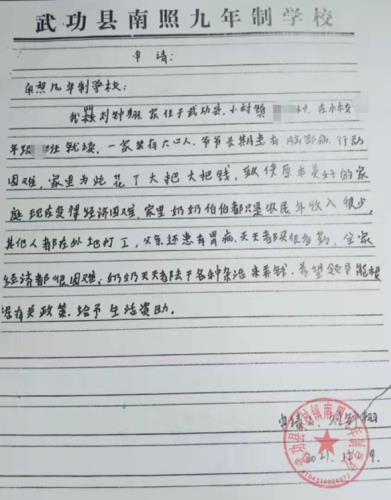 武功县南照九年制学校
申请:
南照九年制学校:
我叫刘钟翔 家住于武功县,小村镇 在本校
年级 班就读,一家共有六口人,爷爷长期患有脑部病,行动
困难,家里为此花了大把大把钱,致使原本美好的家
庭现在变得经济困难,家里奶奶伯伯都只是农民年收入很少,
其他人都在外地打工,父亲还患有胃病,天天都 很 ,全家
经济都很困难,奶奶天天都去干各种杂活来卖钱。希望领导能根
据有关政策.给予生活资助。
申请人:刘钟翔
2021.12.9.